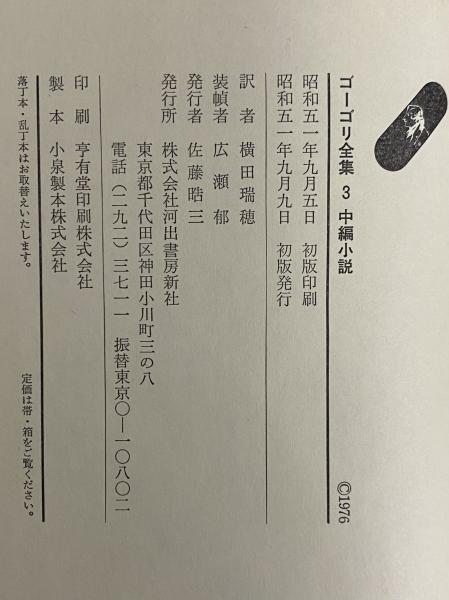 ゴーゴリ全集 3 中編小説
©1976
昭和五一年九月五日 初版印刷
昭和五一年九月九日 初版発行
訳者 横田瑞穂
装幀者 広瀬郁
発行者 佐藤晧三
発行所 株式会社河出書房新社
東京都千代田区神田小川町三の八
電話(二九二)三七一一 振替東京〇―一〇八〇二
印刷 亨有堂印刷株式会社
製本 小泉製本株式会社
落丁本・乱丁本はお取替えいたします。
定価は帯・箱をご覧ください。